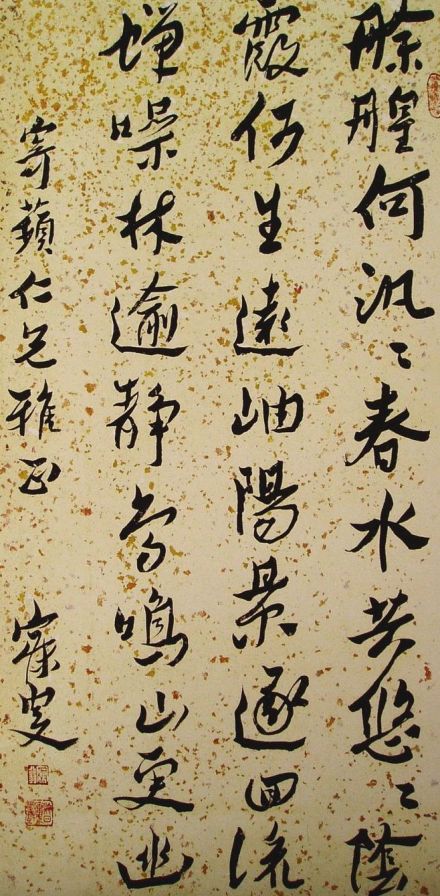 艅艎何汎々春水共悠々陰
霞何生遠岫陽景逐回流
蟬噪林逾靜鳥鳴山更幽
寄蘋仁兄雅正 寐叟